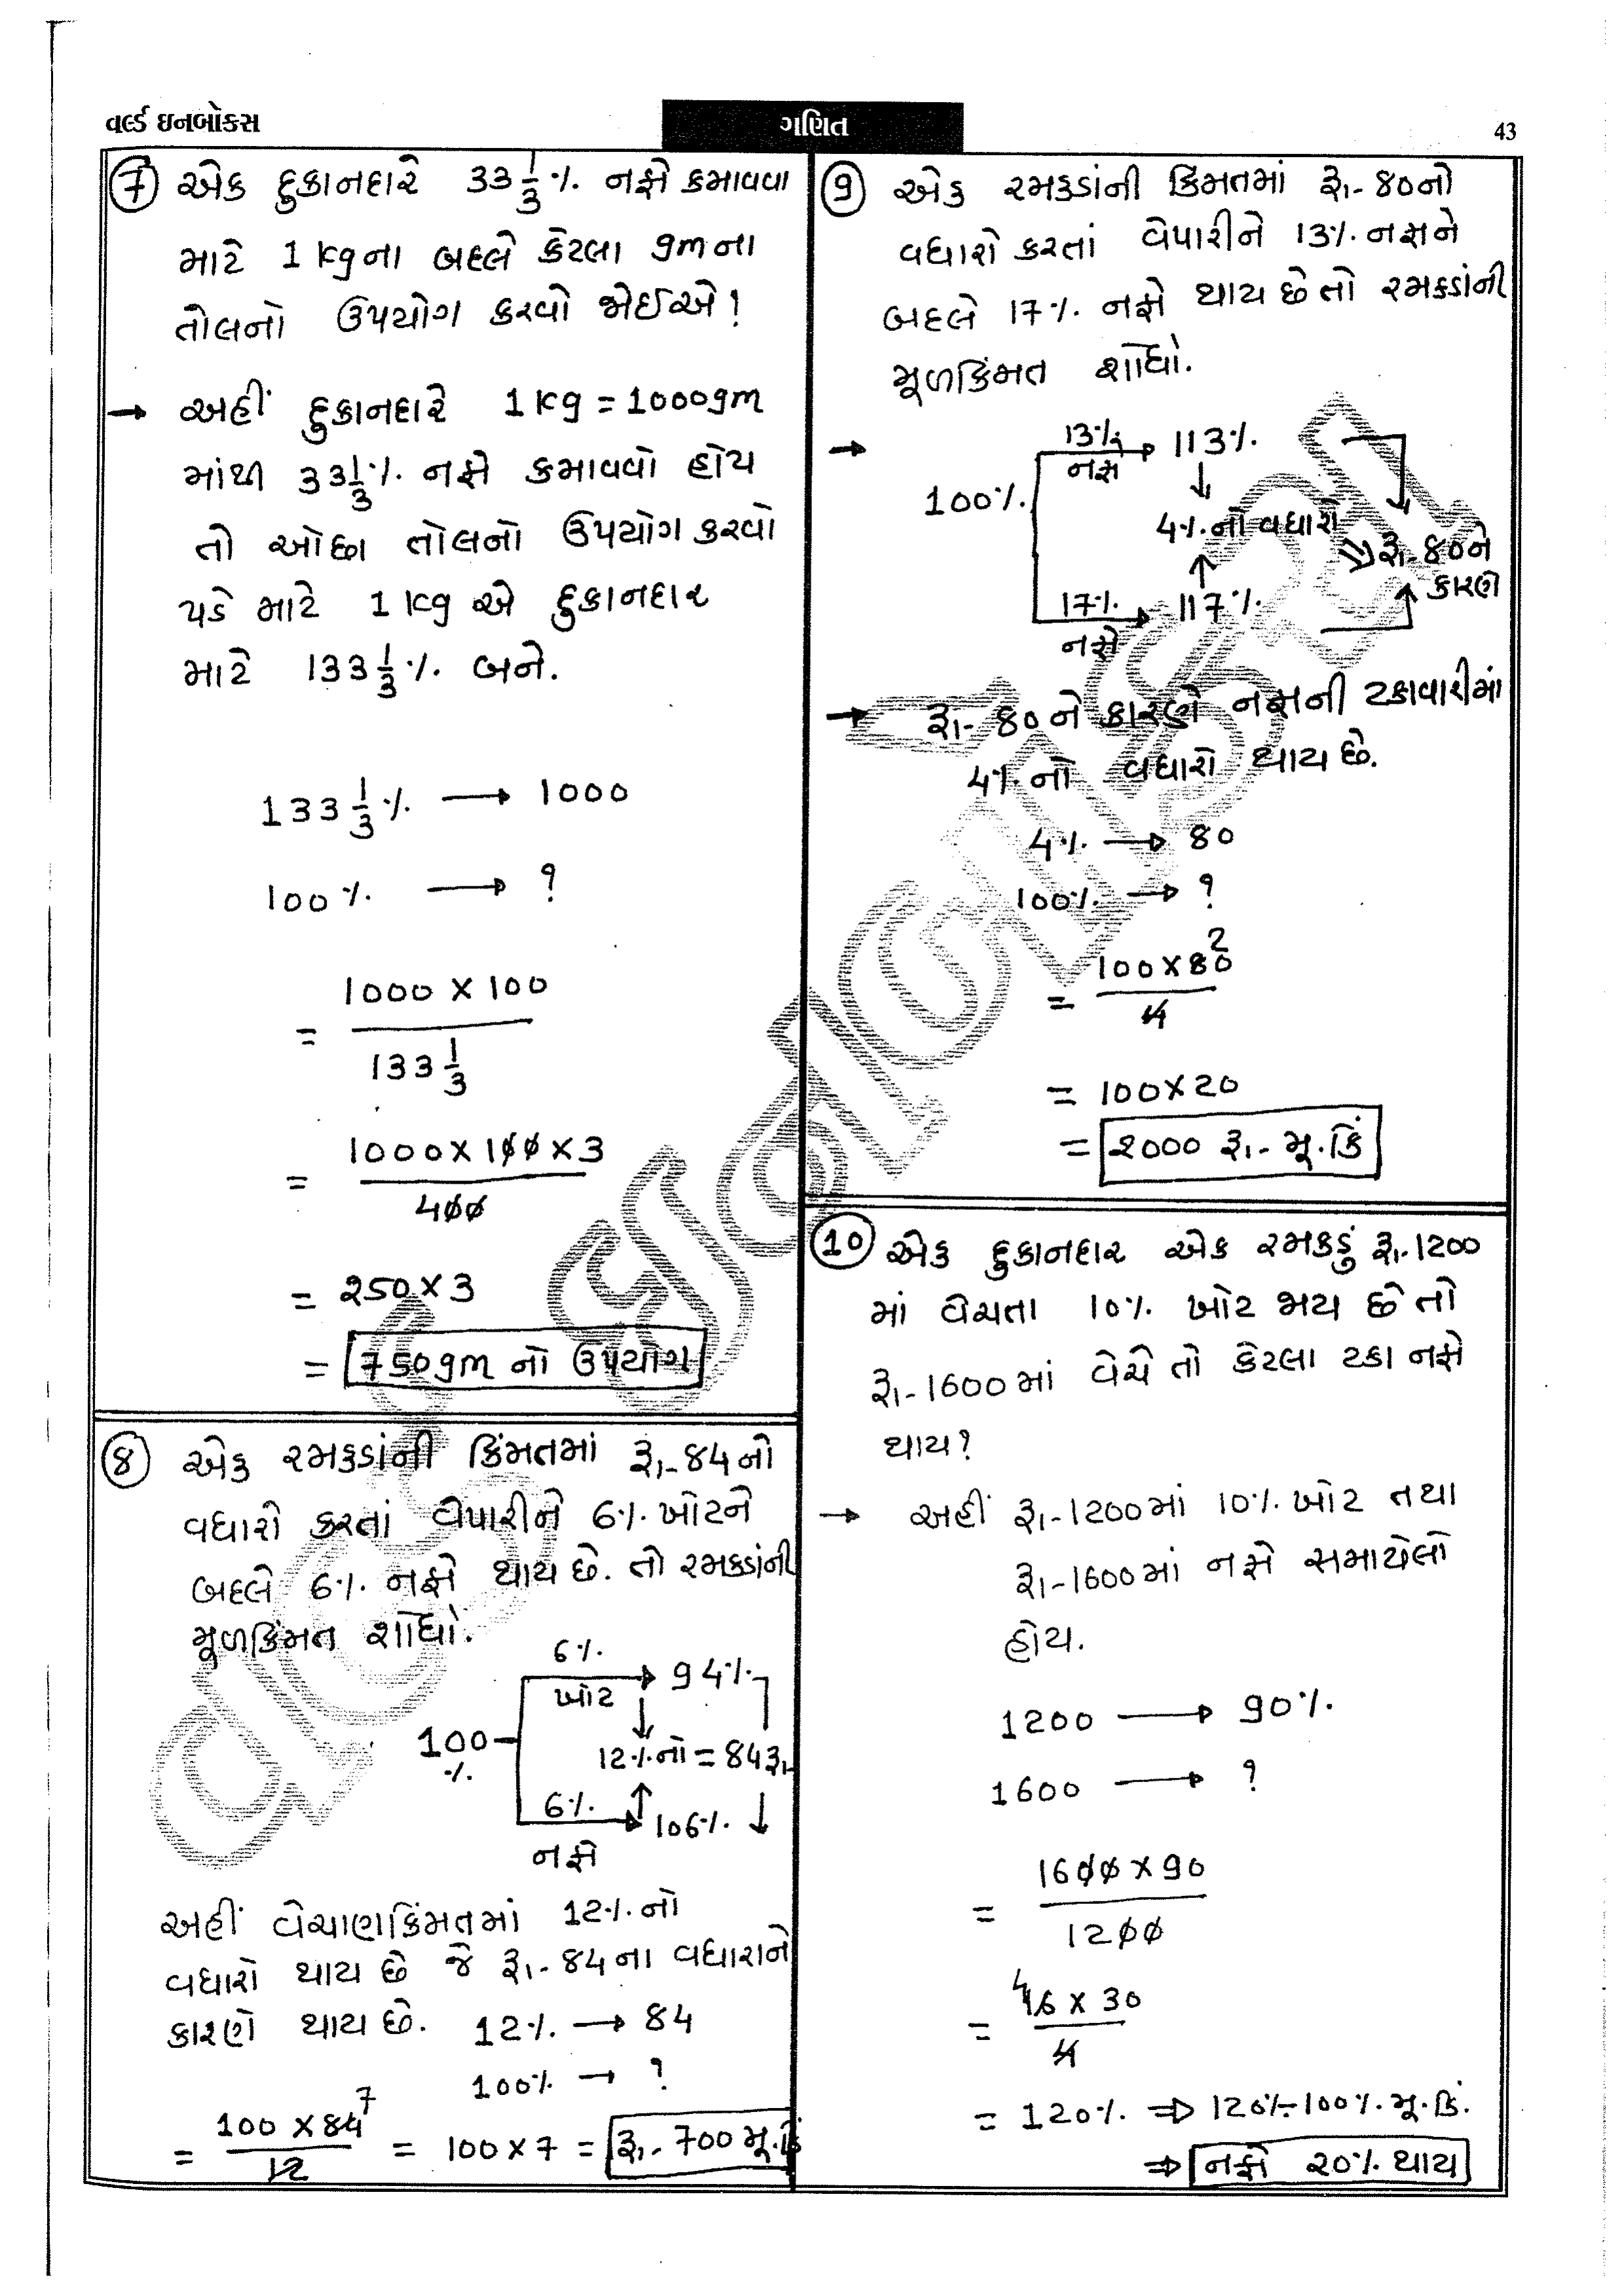 વર્લ્ડ ઇનબોકસ
ગણિત
43
7 એક દુકાનદારે 33 1/3 % નફો કમાવવા
માટે 1 kg ના બદલે કેટલા gm ના
તોલનો ઉપયોગ કરવો જોઈએ!
→ અહીં દુકાનદારે 1 kg = 1000 gm
માંથી 33 1/3 % નફો કમાવવો હોય
તો ઓછા તોલનો ઉપયોગ કરવો
પડે માટે 1 kg એ દુકાનદાર
માટે 133 1/3 % બને.
133 1/3 % → 1000
100 % → ?
= 1000 × 100 / 133 1/3
= 1000 × 100 × 3 / 400
= 250 × 3
= 750 gm નો ઉપયોગ
8 એક રમકડાંની કિંમતમાં રૂા.- 84 નો
વધારો કરતાં વેપારીને 6% ખોટને
બદલે 6% નફો થાય છે. તો રમકડાંની
મૂળકિંમત શોધો.
6% ખોટ → 94%
100 % 12% નો = 84 રૂા.
6% નફો → 106%
અહીં વેચાણકિંમતમાં 12% નો
વધારો થાય છે જે રૂા.- 84 ના વધારાને
કારણે થાય છે. 12% → 84
100% → ?
= 100 × 84 7 / 12 = 100 × 7 = રૂા.- 700 મૂ.કિં
9 એક રમકડાંની કિંમતમાં રૂા.- 80 નો
વધારો કરતાં વેપારીને 13% નફાને
બદલે 17% નફો થાય છે તો રમકડાંની
મૂળકિંમત શોધો.
→ 13% નફો → 113%
100%
4% નો વધારો રૂા.- 80 ને
કારણે
17% નફો → 117%
→ રૂા.- 80 ને કારણે નફાની ટકાવારીમાં
4% નો વધારો થાય છે.
4% → 80
100% → ?
= 100 × 80 2 / 4
= 100 × 20
= 2000 રૂા.- મૂ.કિં
10 એક દુકાનદાર એક રમકડું રૂા.- 1200
માં વેચતા 10% ખોટ જાય છે તો
રૂા.- 1600 માં વેચે તો કેટલા ટકા નફો
થાય?
→ અહીં રૂા.- 1200 માં 10% ખોટ તથા
રૂા.- 1600 માં નફો સમાયેલો
હોય.
1200 → 90%
1600 → ?
= 1600 × 90 / 1200
= 4 16 × 30 / 4
= 120% ⇒ 120% - 100% મૂ.કિં.
⇒ નફો 20% થાય